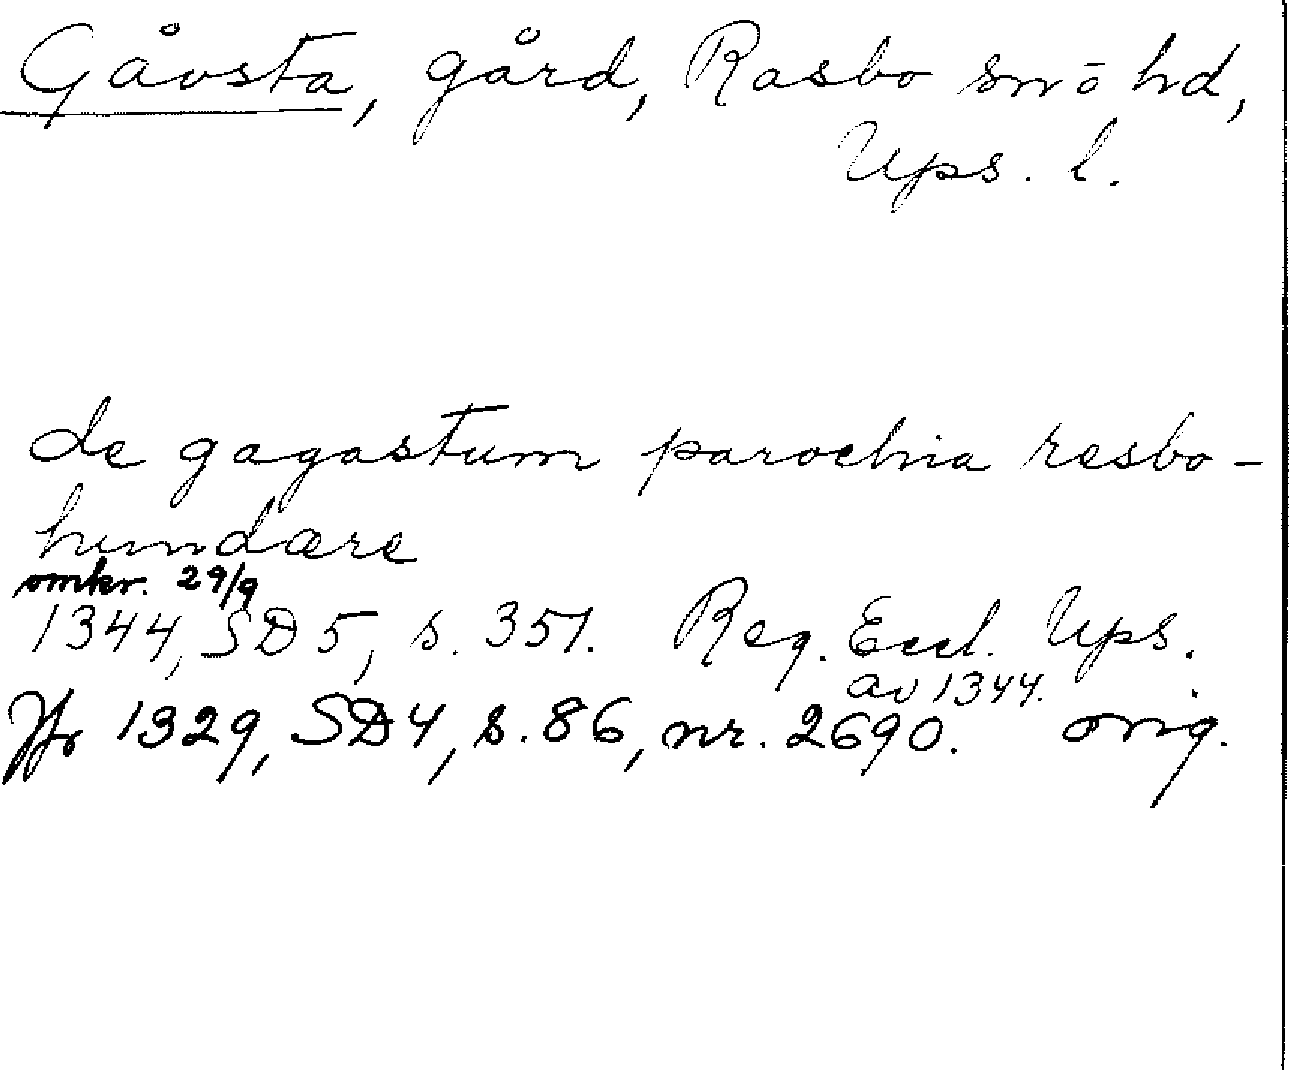 Gåvsta, gård, Rasbo sn o hd,
Ups. l.
de gagastum parochia resbo-
hundære
omkr. 29/9
1344, SD 5, s. 351. Reg. Eccl. Ups.
av 1344.
Jfr 1329, SD 4, s. 86, nr. 2690. orig.